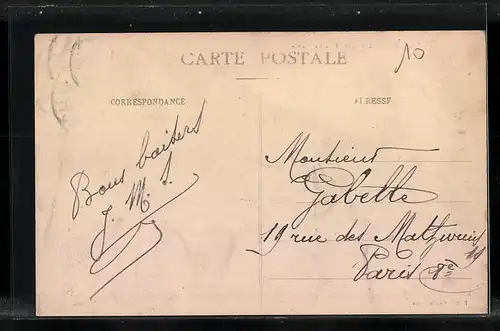 CARTE POSTALE
10
CORRESPONDANCE
ADRESSE
Bons baisers
J. M. J.
Monsieur
Gabelle
19 rue des Mathurins 19
Paris 8e